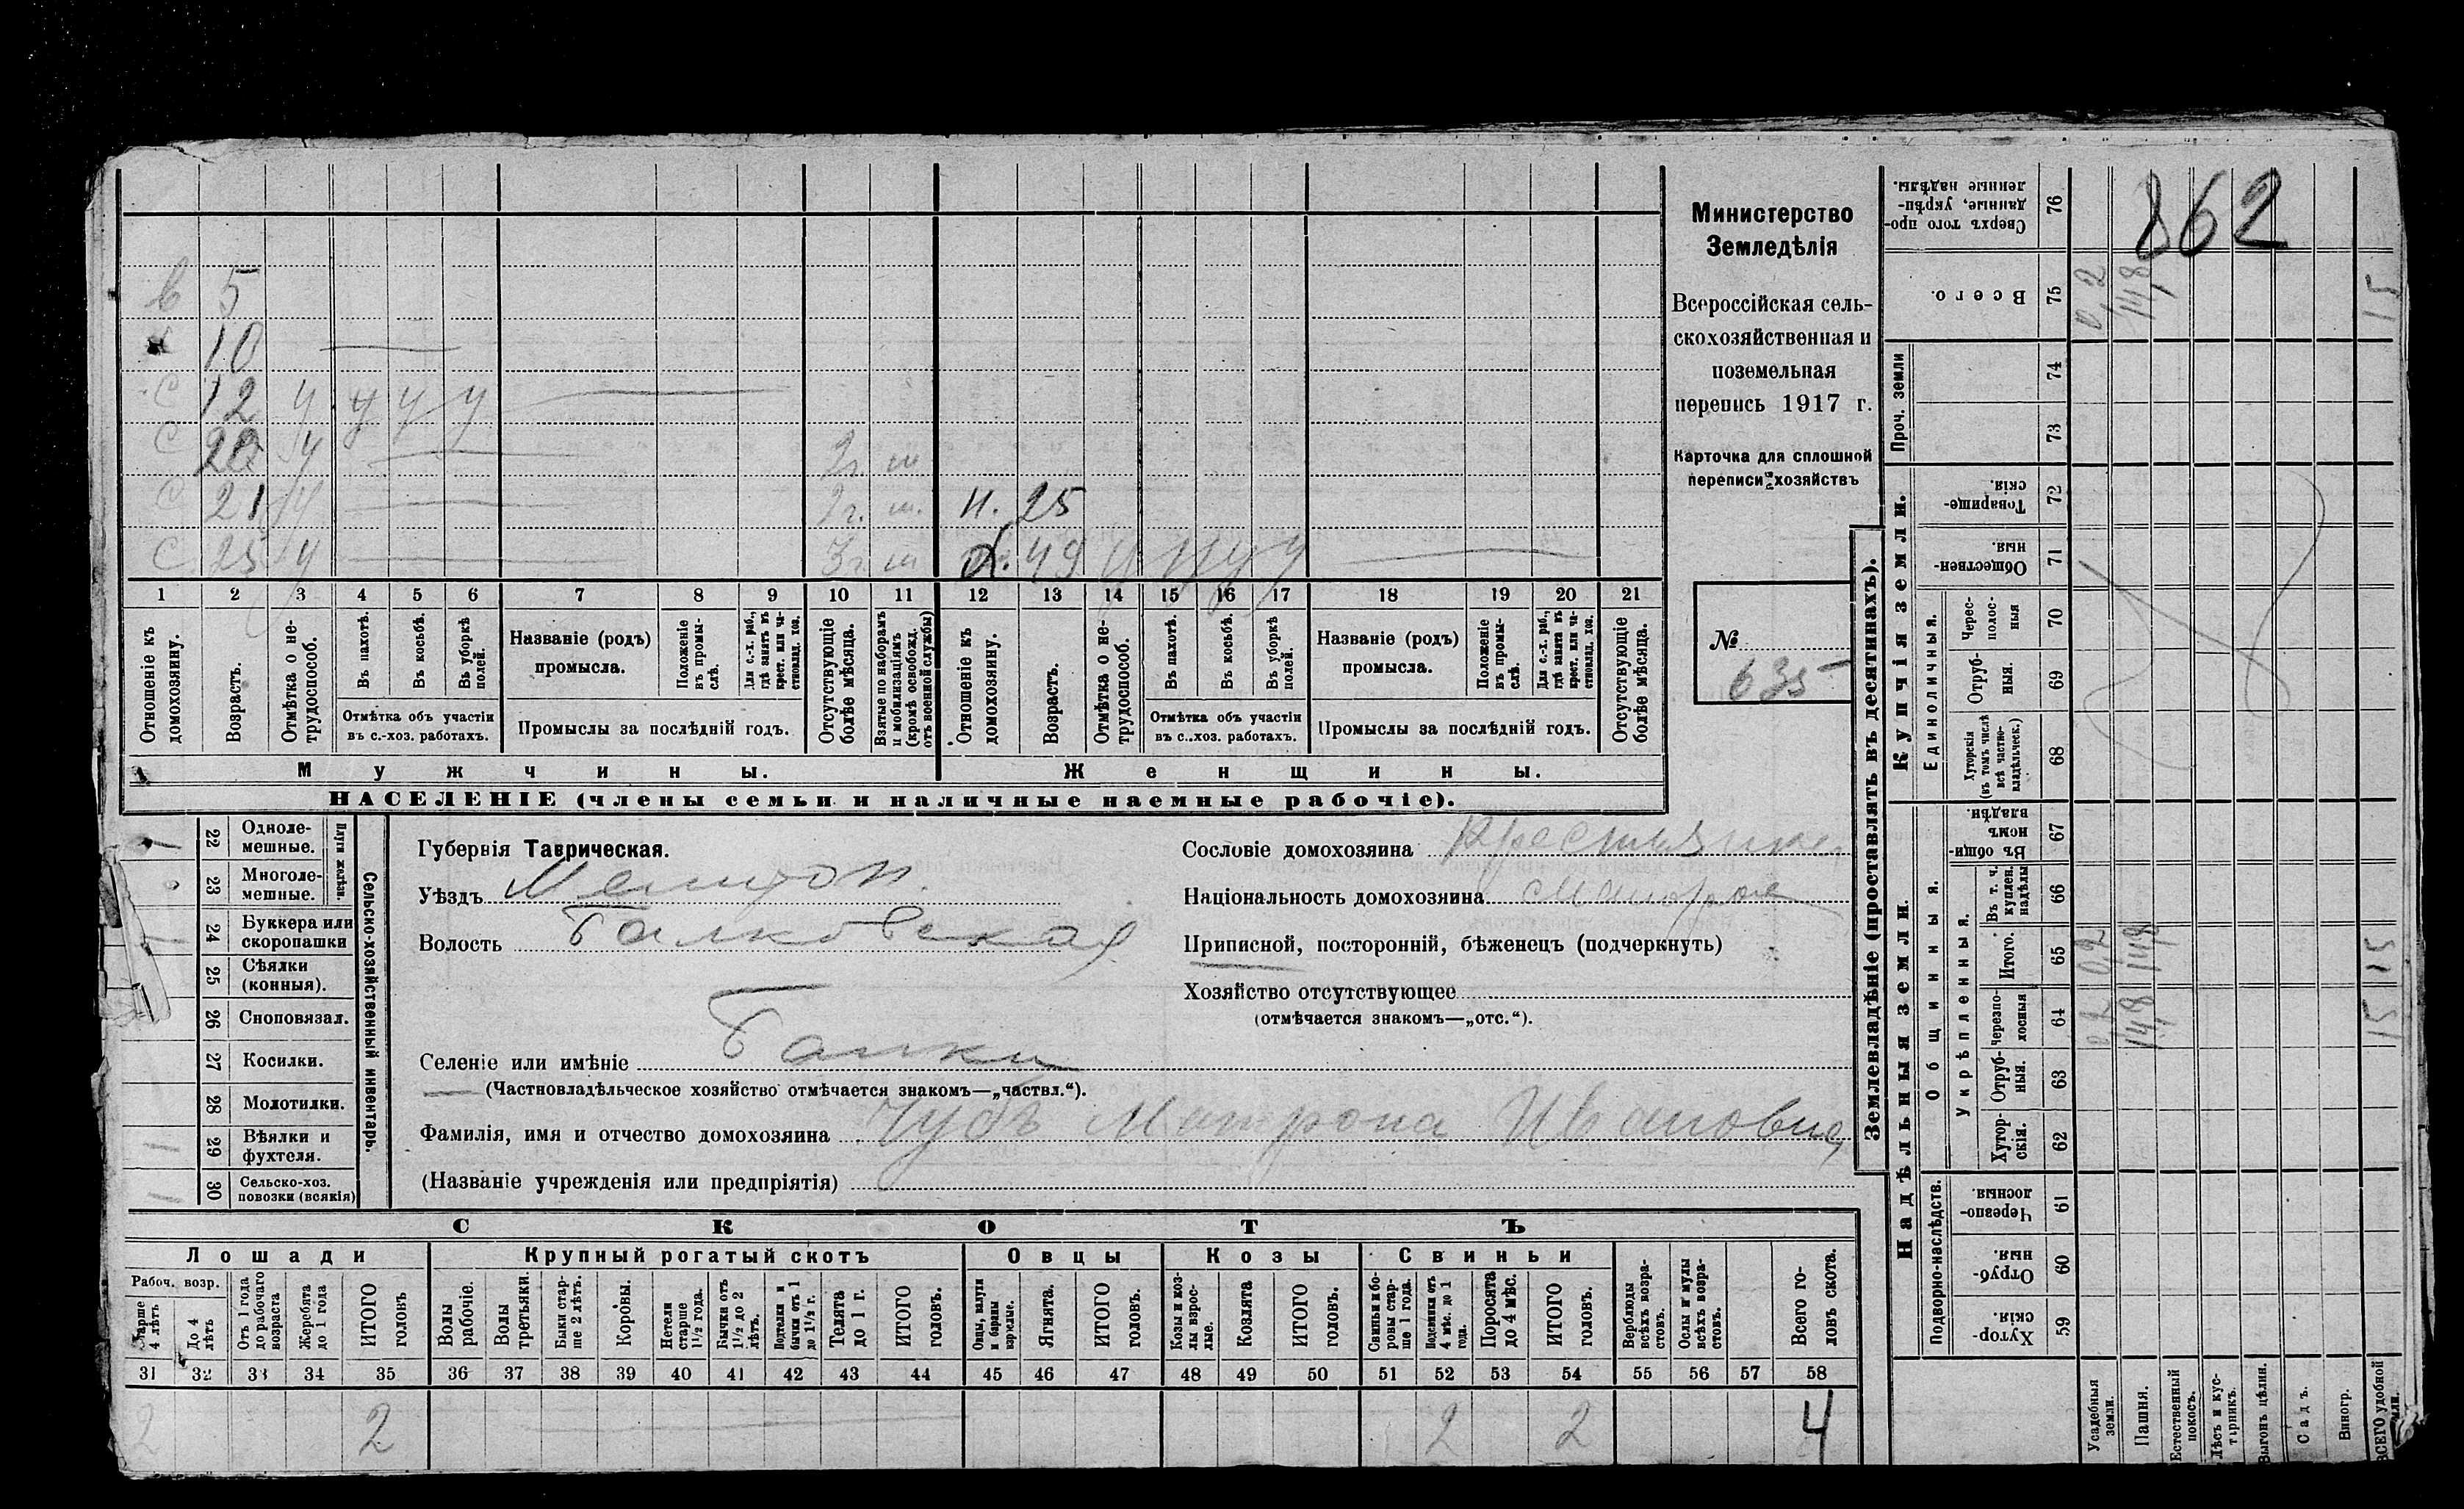 862
Министерство
Земледѣлія
Всероссійская сель-
скохозяйственная и
поземельная
перепись 1917 г.
Карточка для сплошной
переписи хозяйствъ
№
635
5
10
12 у у у у
С 20 2г.
С 21 2г. н. 25
С 25 3г. 49
1 2 3 4 5 6 7 8 9 10 11 12 13 14 15 16 17 18 19 20 21
Отношеніе къ домохозяину.
Возрастъ.
Отмѣтка о не-трудоспособ.
Въ пахотѣ.
Въ косьбѣ.
Въ уборкѣ полей.
Отмѣтка объ участіи
въ с.-хоз. работахъ.
Названіе (родъ)
промысла.
Положеніе въ промы-слѣ.
Для с.-х. раб., гдѣ занятъ въ крест. или ча-стновлад. хоз.
Промыслы за послѣдній годъ.
Отсутствующіе болѣе мѣсяца.
Взятые по наборамъ и мобилизаціямъ (кромѣ освобожд. отъ военной службы)
Отношеніе къ домохозяину.
Возрастъ.
Отмѣтка о не-трудоспособ.
Въ пахотѣ.
Въ косьбѣ.
Въ уборкѣ полей.
Отмѣтка объ участіи
въ с..хоз. работахъ.
Названіе (родъ)
промысла.
Положеніе въ промы-слѣ.
Для с.-х. раб., гдѣ занята въ крест. или ча-стновлад. хоз.
Промыслы за послѣдній годъ.
Отсутствующіе болѣе мѣсяца.
Мужчины.
Женщины.
НАСЕЛЕНІЕ (члены семьи и наличные наемные рабочіе).
Сельско-хозяйственный инвентарь.
Плуги желѣзн.
22 Одноле-мешные.
23 Многоле-мешные.
24 Буккера или скоропашки
25 Сѣялки (конныя).
26 Сноповязал.
27 Косилки.
28 Молотилки.
29 Вѣялки и фухтеля.
30 Сельско-хоз. повозки (всякія)
Губернія Таврическая.
Уѣздъ Мелитоп.
Волость Балковская
Селеніе или имѣніе Балки
(Частновладѣльческое хозяйство отмѣчается знакомъ—„частвл.“).
Фамилія, имя и отчество домохозяина Чубъ Матрона Ивановна
(Названіе учрежденія или предпріятія)
Сословіе домохозяина
Національность домохозяина малорос
Приписной, посторонній, бѣженецъ (подчеркнуть)
Хозяйство отсутствующее
(отмѣчается знакомъ—„отс.“).
СКОТЪ
Лошади
Крупный рогатый скотъ
Овцы
Козы
Свиньи
Рабоч. возр.
Старше 4 лѣтъ
До 4 лѣтъ
Отъ 1 года до рабочаго возраста
Жеребята до 1 года
ИТОГО головъ
Волы рабочіе.
Волы третьяки.
Быки стар-ше 2 лѣтъ.
Коровы.
Нетели старше 1 1/2 года.
Бычки отъ 1 1/2 до 2 лѣтъ.
Подтелки и бычки отъ 1 до 1 1/2 г.
Телята до 1 г.
ИТОГО головъ.
Овцы, валухи и бараны взрослые.
Ягнята.
ИТОГО головъ.
Козы и коз-лы взрос-лые.
Козлята
ИТОГО головъ.
Свиньи и бо-ровы стар-ше 1 года.
Подсвинки отъ 4 мѣс. до 1 года.
Поросята до 4 мѣс.
ИТОГО головъ.
Верблюды всѣхъ возра-стовъ.
Ослы и мулы всѣхъ возра-стовъ.
Всего го-ловъ скота.
31 32 33 34 35 36 37 38 39 40 41 42 43 44 45 46 47 48 49 50 51 52 53 54 55 56 57 58
2 2 2 2 4
Землевладѣніе (проставлять въ десятинахъ).
Купчія земли.
Надѣльныя земли.
76 Сверхъ того про-данные, укрѣп-ленные надѣлы.
75 Всего. 0,2 14,8 15
Проч. земли
74
73
72 Товарище-скія.
71 Обществен-ныя.
Единоличныя.
70 Черес-полос-ныя
69 Отруб-ныя.
68 Хуторскія (въ томъ числѣ всѣ частно-владѣльческ.)
Общинныя.
67 Въ общин-номъ владѣн.
Укрѣпленныя.
66 Въ т. ч. куплен. надѣлы
65 Итого. 0,2 14,8 15
64 Черезпо-лосныя 14,8 15
63 Отруб-ныя.
62 Хутор-скія.
Подворно-наслѣдств.
61 Черезпо-лосныя.
60 Отруб-ныя.
59 Хутор-скія.
Усадебныя земли.
Пашня.
Естественный покосъ.
Лѣсъ и кус-тарникъ.
Выгонъ цѣлин.
Садъ.
Виногр.
ВСЕГО удобной